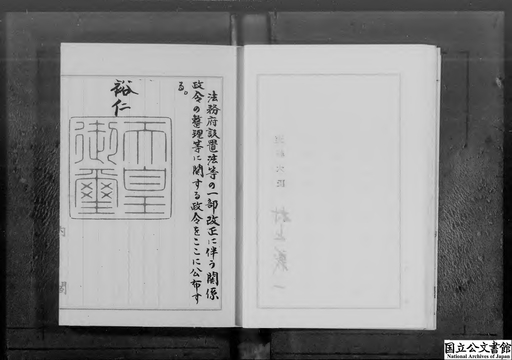 法務府設置法等の一部改正に伴う関係
政令の整理等に関する政令をここに公布す
る。
裕仁
天皇
御璽
内閣
国立公文書館
National Archives of Japan